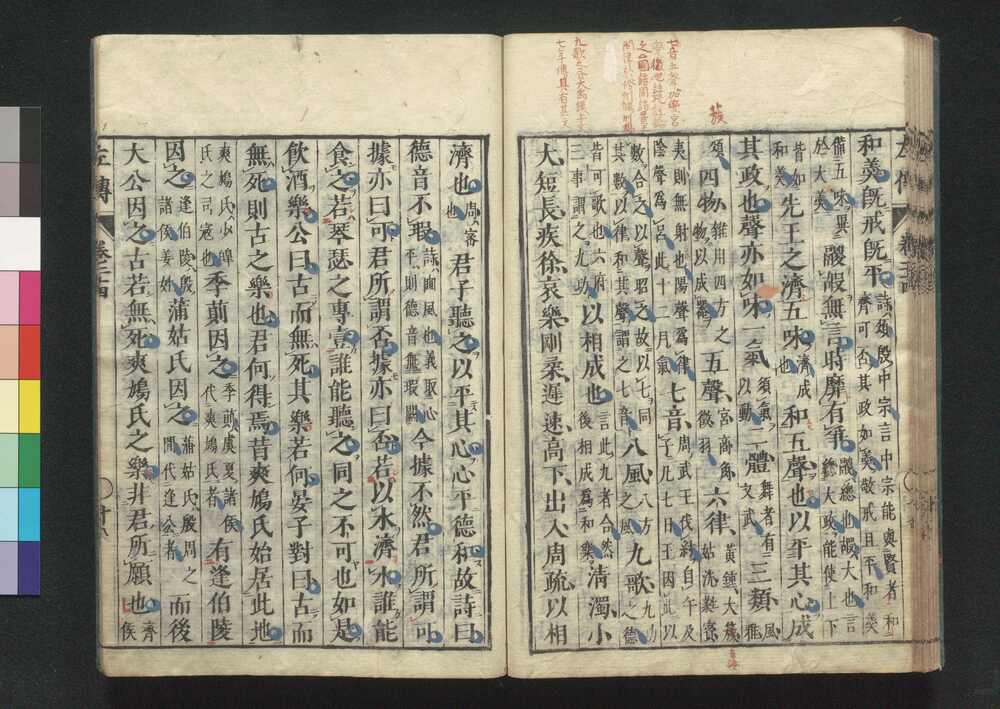 蔟
和羮旣戒旣平 詩頌殷中宗言中宗能與賢者和 齊可否其政如羮敬戒且平和羮
備五味異 於大羮 鬷嘏無言時靡有爭 鬷總也嘏大也言 總大政能使上下
皆如 和羮 先王之濟五味 濟成 也 和五聲也以平其心成
其政也聲亦如味一氣 須氣 以動 二體 舞者有 文武 三類 風 雅
頌 四物 雜用四方之 物以成器 五聲 宮商角 徵羽 六律 黃鍾大蔟 姑洗蕤賓
夷則無射也陽聲爲律 陰聲爲呂此十二月氣 七音 周武王伐紂自午及 子凡七日王因此以
數合之以聲昭之故以七同 其數以律和其聲謂之七音 八風 八方 之風 九歌 九功 之德
皆可歌也六府 三事謂之九功 以相成也 言此九者合然 後相成爲和樂 清濁小
大短長疾徐哀樂剛柔遲速高下出入周疏以相
濟也 周密 也 君子聽之以平其心心平德和故詩曰
德音不瑕 詩豳風也義取心 平則德音無瑕闕 今據不然君所謂可
據亦曰可君所謂否據亦曰否若以水濟水誰能
食之若琴瑟之專壹誰能聽之同之不可也如是
飮酒樂公曰古而無死其樂若何晏子對曰古而
無死則古之樂也君何得焉昔爽鳩氏始居此地
爽鳩氏少皥 氏之司寇也 季萴因之 季萴虞夏諸侯 代爽鳩氏者 有逢伯陵
因之 逢伯陵殷 諸侯姜姓 蒲姑氏因之 蒲姑氏殷周之 閒代逢公者 而後
大公因之古若無死爽鳩氏之樂非君所願也 齊 侯
左傳